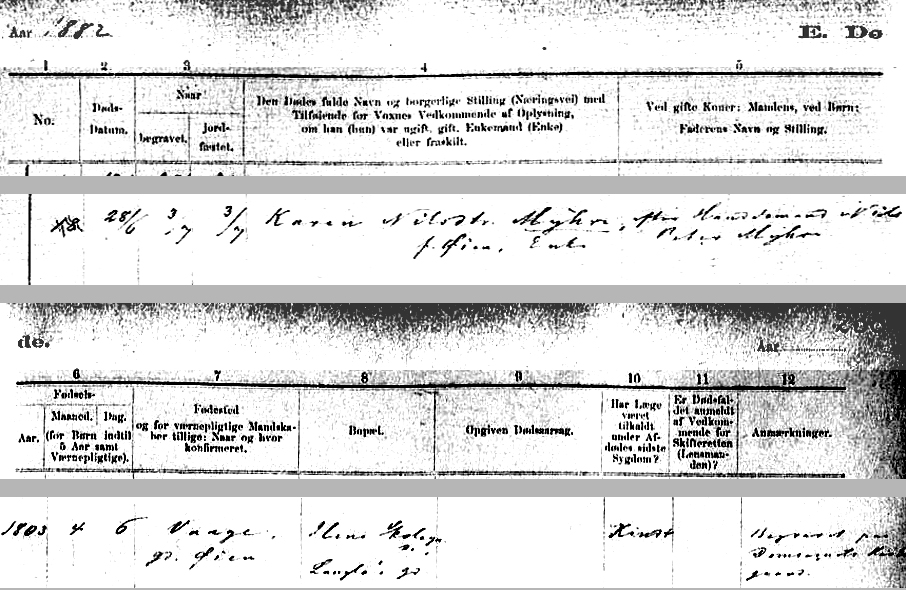 Aar 1882
E. Dø
1 2 3 4 5
No.
Døds-
Datum.
Naar
begravet.
Jord-
fæstet.
Den Dødes fulde Navn og borgerlige Stilling (Næringsvei) med
Tilføiende for Voxnes Vedkommende af Oplysning,
om han (hun) var ugift, gift, Enkemand (Enke)
eller fraskilt.
Ved gifte Koner: Mandens, ved Børn:
Faderens Navn og Stilling.
28/6 3/7 3/7 Karen Nilsdtr. Myhre, efter Huusmand Niels
f. Øien, Enke Peter Myhre
de.
Aar
6 7 8 9 10 11 12
Fødsels-
Aar.
Maaned. Dag.
(for Børn indtil
5 Aar samt
Værnepligtige).
Fødested
og for værnepligtige Mandska-
ber tillige: Naar og hvor
konfirmeret.
Bopæl.
Opgiven Dødsaarsag.
Har Læge
været
tilkaldt
under Af-
dødes sidste
Sygdom?
Er Dødsfal-
det anmeldt
af Vedkom-
mende for
Skifteretten
(Lensman-
den)?
Anmærkninger.
1803 4 6 Vaage. Ilens
gd. Øien
Begravet paa
Domsognets Kirke
gaard.